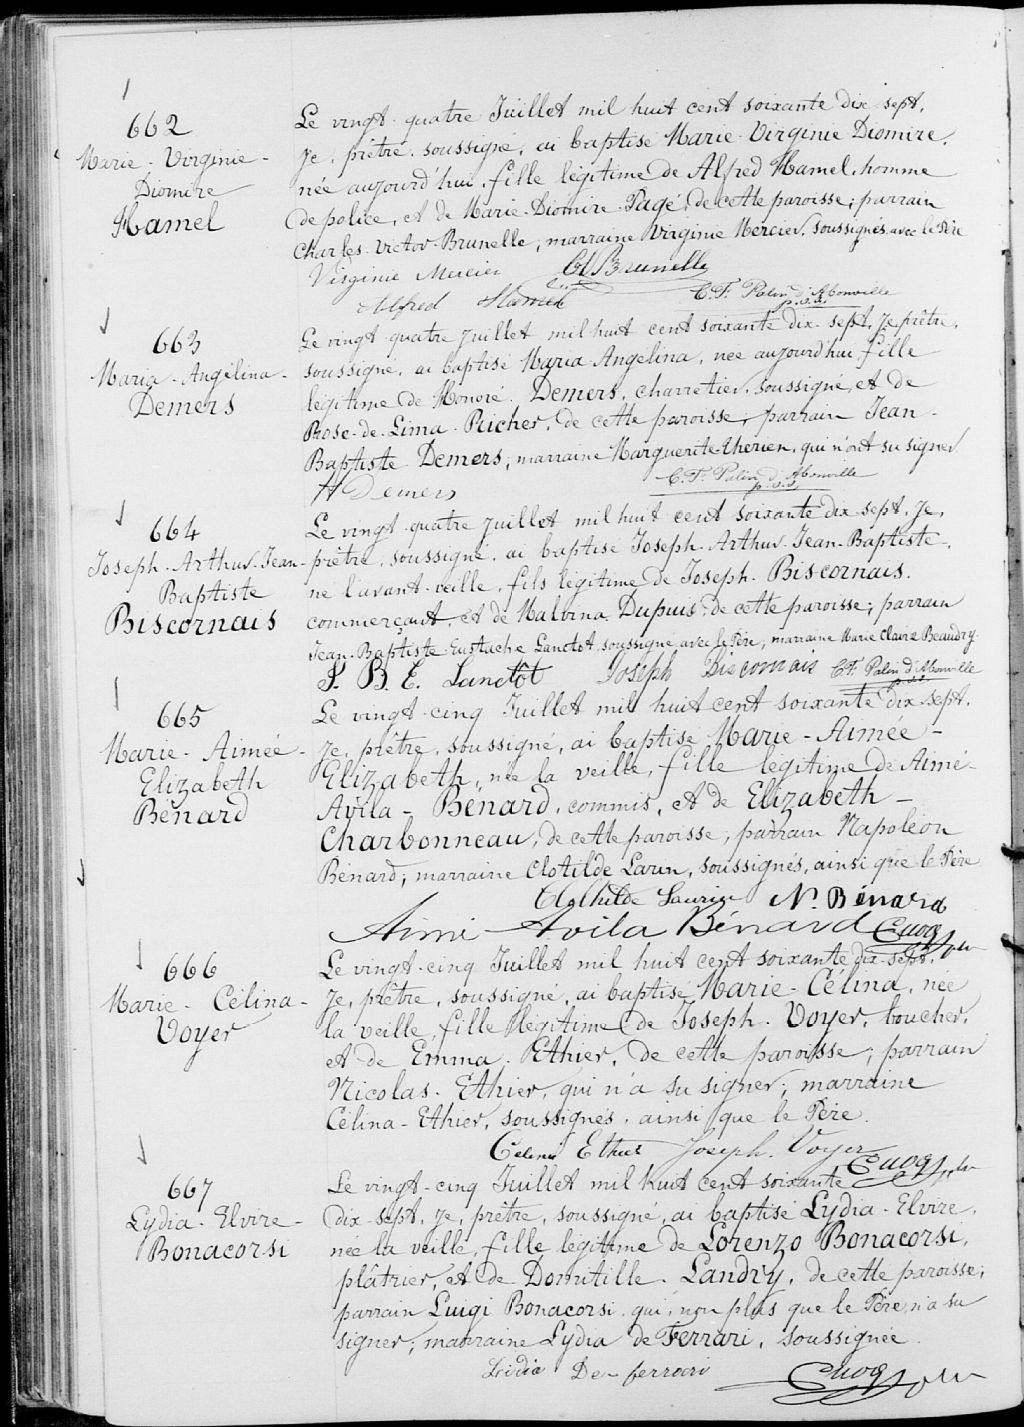 662
Marie-Virginie-
Diomire
Hamel
Le vingt-quatre Juillet mil huit cent soixante dix sept,
Je, prêtre, soussigné, ai baptisé Marie-Virginie Diomire,
née aujourd'hui, fille légitime de Alfred Hamel, homme
de police, et de Marie-Diomire Pagé, de cette paroisse; parrain
Charles-Victor Brunelle, marraine Virginie Mercier, soussignés avec le Père
Virginie Mercier CV Brunelle
Alfred Hamel C.F. Palin d'Abonville
p.s.s.
663
Maria-Angélina-
Demers
Le vingt-quatre Juillet mil huit cent soixante dix-sept, Je, prêtre,
soussigné, ai baptisé Maria-Angélina, née aujourd'hui, fille
légitime de Honoré Demers, charretier, soussigné, et de
Rose-de-Lima-Richer, de cette paroisse; parrain Jean-
Baptiste Demers, marraine Marguerite Therien, qui n'ont su signer
H Demers C.F. Palin d'Abonville
p.s.s.
664
Joseph-Arthur-Jean-
Baptiste
Biscornais
Le vingt-quatre Juillet mil huit cent soixante dix-sept, Je,
prêtre, soussigné, ai baptisé Joseph-Arthur-Jean-Baptiste,
né l'avant-veille, fils légitime de Joseph Biscornais,
commerçant, et de Malvina Dupuis, de cette paroisse; parrain
Jean-Baptiste-Eustache Lanctot soussigné avec le Père, marraine Marie Claire Beaudry.
J. B. E. Lanctôt Joseph Biscornais C.F. Palin d'Abonville
p.s.s.
665
Marie-Aimée-
Elizabeth
Bénard
Le vingt-cinq Juillet mil huit cent soixante dix sept,
Je, prêtre, soussigné, ai baptisé Marie-Aimée-
Elizabeth, née la veille, fille légitime de Aimé-
Avila-Bénard, commis, et de Elizabeth-
Charbonneau, de cette paroisse; parrain Napoléon
Bénard, marraine Clotilde Larin, soussignés, ainsi que le Père
Clothilde Laurin N. Bénard
Aimé Avila Bénard Cuoq ptre
666
Marie-Célina-
Voyer
Le vingt-cinq Juillet mil huit cent soixante dix-sept,
Je, prêtre, soussigné, ai baptisé Marie-Célina, née
la veille, fille légitime de Joseph Voyer, boucher,
et de Emma Ethier, de cette paroisse; parrain
Nicolas Ethier, qui n'a su signer, marraine
Célina-Ethier, soussignés, ainsi que le Père.
Celina Ethier Joseph Voyer Cuoq ptre
667
Lydia-Elvire-
Bonacorsi
Le vingt-cinq Juillet mil huit cent soixante
dix-sept, Je, prêtre, soussigné, ai baptisé Lydia-Elvire,
née la veille, fille légitime de Lorenzo Bonacorsi,
plâtrier, et de Domitille Landry, de cette paroisse;
parrain Luigi Bonacorsi qui, non plus que le Père, n'a su
signer, marraine Lydia de Ferrari, soussignée.
Lidia De-ferrari Cuoq ptre